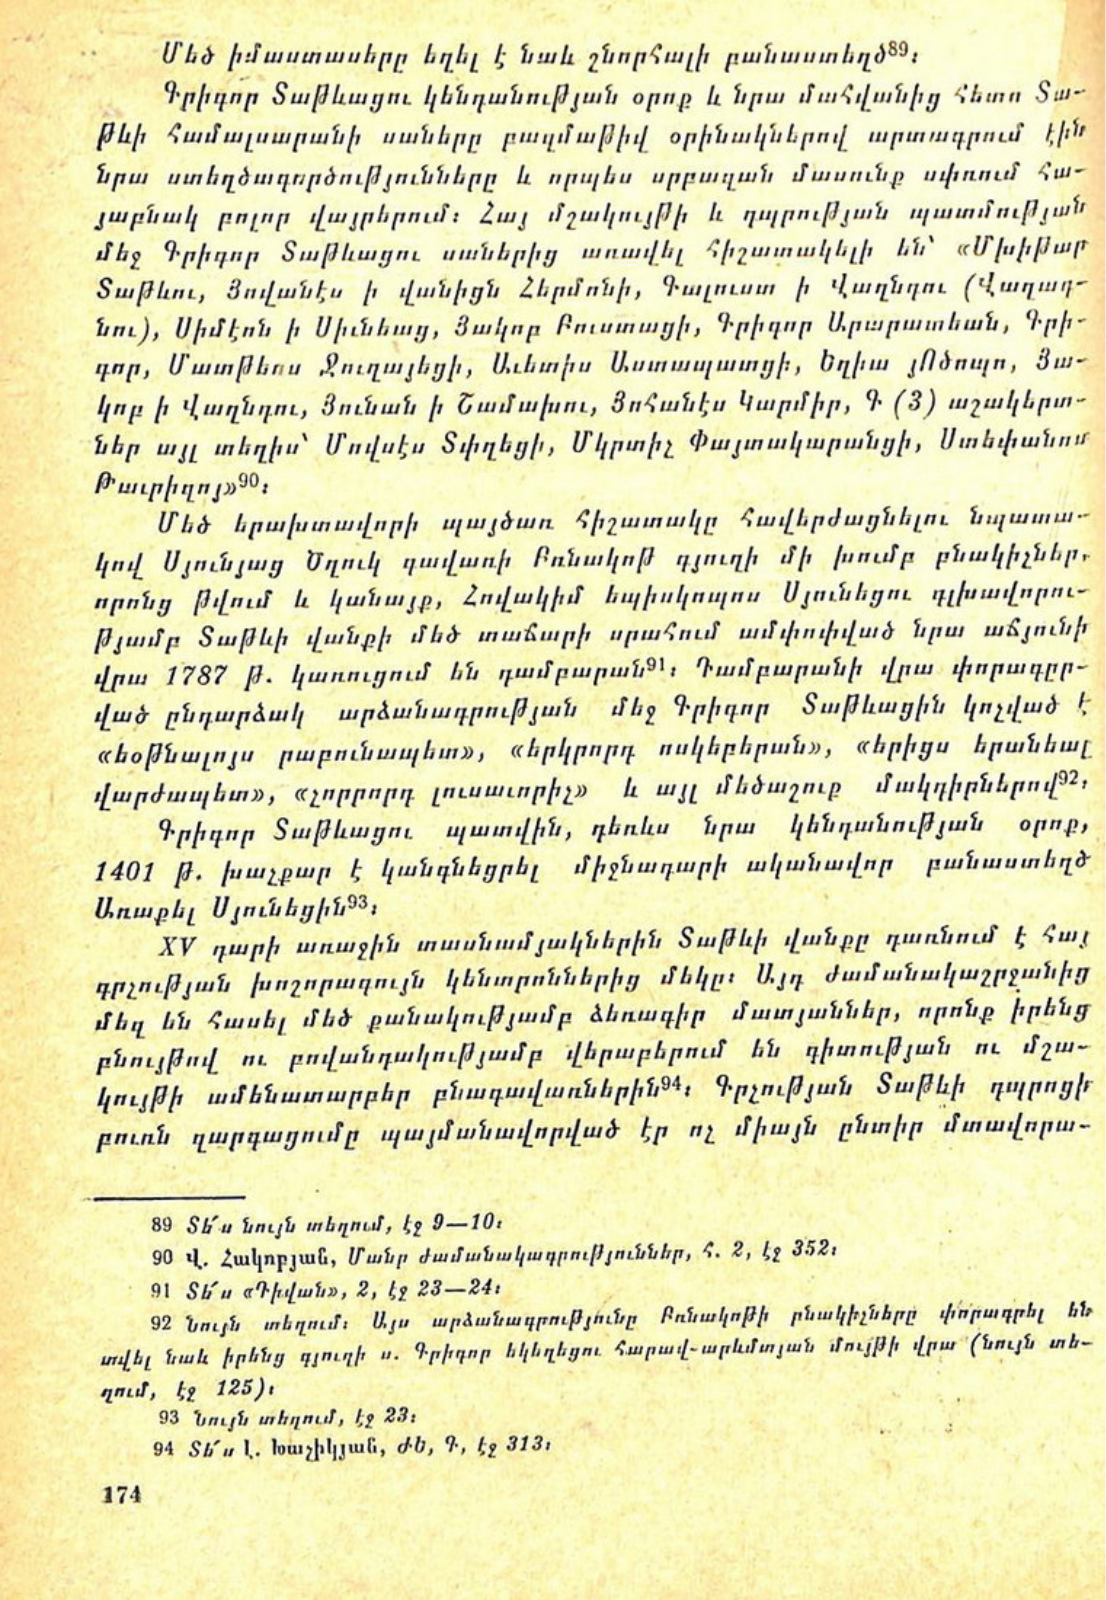 Մեծ իմաստասերը եղել է նաև շնորհալի բանաստեղծ89։
Գրիգոր Տաթևացու կենդանության օրոք և նրա մահվանից հետո Տա-
թևի համալսարանի սաները բազմաթիվ օրինակներով արտագրում էին
նրա ստեղծագործությունները և որպես սրբազան մասունք սփռում հա-
յաբնակ բոլոր վայրերում։ Հայ մշակույթի և դպրության պատմության
մեջ Գրիգոր Տաթևացու սաներից առավել հիշատակելի են՝ «Մխիթար
Տաթևու, Յովանէս ի վանիցն Հերմոնի, Գալուստ ի Վաղնդու (Վաղադ-
նու), Սիմէոն ի Սիւնեաց, Յակոբ Բուստացի, Գրիգոր Արարատեան, Գրի-
գոր, Մատթեոս Ջուղայեցի, Աւետիս Աստապատցի, Եղիա յՈծոպո, Յա-
կոբ ի Վաղնդու, Յունան ի Շամախու, Յոհանէս Կարմիր, Գ (3) աշակերտ-
ներ այլ տեղիս՝ Մովսէս Տփղեցի, Մկրտիչ Փայտակարանցի, Ստեփանոս
Թաւրիզոյ»90։
Մեծ երախտավորի պայծառ հիշատակը հավերժացնելու նպատա-
կով Սյունյաց Ծղուկ գավառի Բռնակոթ գյուղի մի խումբ բնակիչներ,
որոնց թվում և կանայք, Հովակիմ եպիսկոպոս Սյունեցու գլխավորու-
թյամբ Տաթևի վանքի մեծ տաճարի սրահում ամփոփված նրա աճյունի
վրա 1787 թ. կառուցում են դամբարան91։ Դամբարանի վրա փորագըր-
ված ընդարձակ արձանագրության մեջ Գրիգոր Տաթևացին կոչված է
«եօթնալոյս րաբունապետ», «երկրորդ ոսկեբերան», «երիցս երանեալ
վարժապետ», «չորրորդ լուսաւորիչ» և այլ մեծաշուք մակդիրներով92։
Գրիգոր Տաթևացու պատվին, դեռևս նրա կենդանության օրոք,
1401 թ. խաչքար է կանգնեցրել միջնադարի ականավոր բանաստեղծ
Առաքել Սյունեցին93։
XV դարի առաջին տասնամյակներին Տաթևի վանքը դառնում է հայ
գրչության խոշորագույն կենտրոններից մեկը։ Այդ ժամանակաշրջանից
մեզ են հասել մեծ քանակությամբ ձեռագիր մատյաններ, որոնք իրենց
բնույթով ու բովանդակությամբ վերաբերում են գիտության ու մշա-
կույթի ամենատարբեր բնագավառներին94։ Գրչության Տաթևի դպրոցի
բուռն զարգացումը պայմանավորված էր ոչ միայն ընտիր մտավորա-
89 Տե՛ս նույն տեղում, էջ 9—10։
90 Վ. Հակոբյան, Մանր ժամանակագրություններ, հ. 2, էջ 352։
91 Տե՛ս «Դիվան», 2, էջ 23—24։
92 Նույն տեղում։ Այս արձանագրությունը Բռնակոթի բնակիչները փորագրել են
տվել նաև իրենց գյուղի ս. Գրիգոր եկեղեցու հարավ-արևմտյան մույթի վրա (նույն տե-
ղում, էջ 125)։
93 Նույն տեղում, էջ 23։
94 Տե՛ս Լ. Խաչիկյան, ԺԵ, Գ, էջ 313։
174